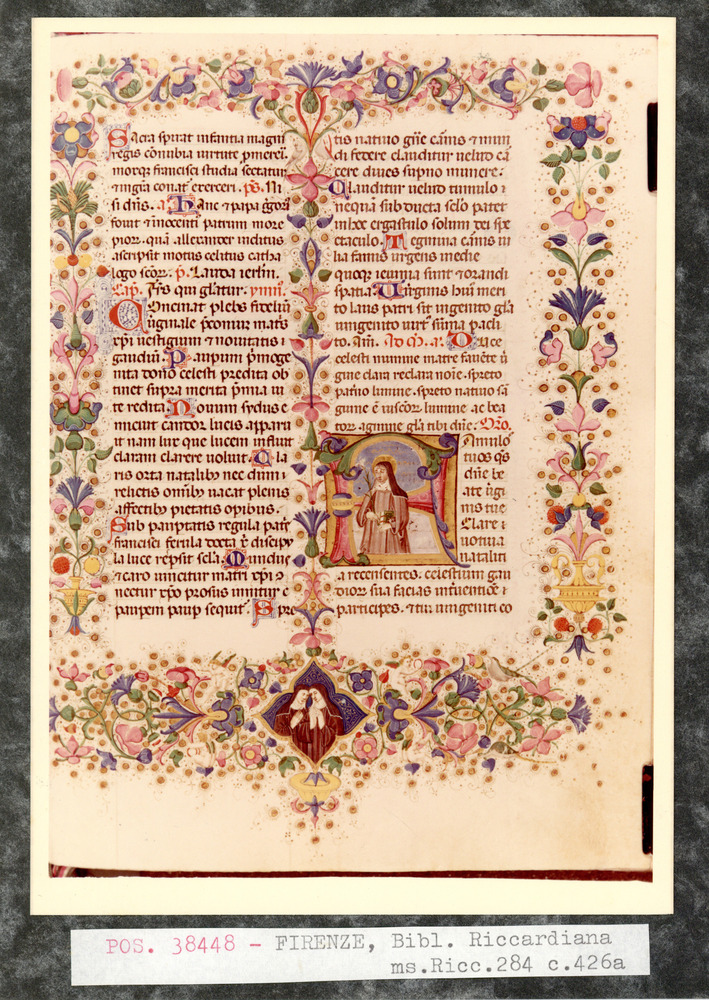 Sacra spirat infantia magni
regis cōnubia virtute pmereri.
morq; francisci studia sectatur
ps. Ni
si dn̄s. a. Hanc ⁊ papa ggori
fouit ⁊ īnocenti patrum more
pior. quā allexander inclitus
ascripsit motus celitus catha
logo scōr. p. Lauda ierlm.
Cap. Frs qui gl'atur. ymn.
Concinat plebs fidelium
uirginale preconium matris
xp̄i uestigium ⁊ nouitatis
gaudiū. Paupum pmoge
nita dono celesti predita ob
tinet supra merita pmia ui
te reddita. Nouum sydus e
micuit candor lucis apparu
it nam lux que lucem influit
claram clarere uoluit. Cla
ris orta natalibꝫ nec dum
relictis omībꝫ uacat plenis
affectibꝫ pietatis opibus.
Sub paupertatis regula patris
francisci ferula docta discip
la luce respsit Mundus
⁊ caro uincitur matri xp̄i
nectur xp̄o prorsus unitur
paupem paup sequit'. Spre
tis natiuo carnis ⁊ mun
di federe clauditur uelut car
cere diues supno munere.
Clauditur uelut tumulo
nequam subducta selo patet
in hoc ergastulo solum dei spe
ctaculo. Tegmina carnis
lia famis urgens medie
quoq; ieiunia sunt ⁊ orandi
spatia. Uirginis huius meri
to laus patri sit ingenito gl'a
unigenito uirt' summa pacli
to. Am. Ad M. a. Duce
celesti numine matre fauente
gine clara reclara noīe. spreto
patrio lumine. spreto natiuo
lumine ac bea
tor agmine gl'a tibi dn̄e. Oro.
Famulo
tuos qs
dn̄e be
ate uigi
nis tue
Clare
uotiua
natalitia
recensentes. celestium gau
dior sua facias
participes. ⁊ tui unigeniti co
POS. 38448 - FIRENZE, Bibl. Riccardiana
ms.Ricc.284 c.426a